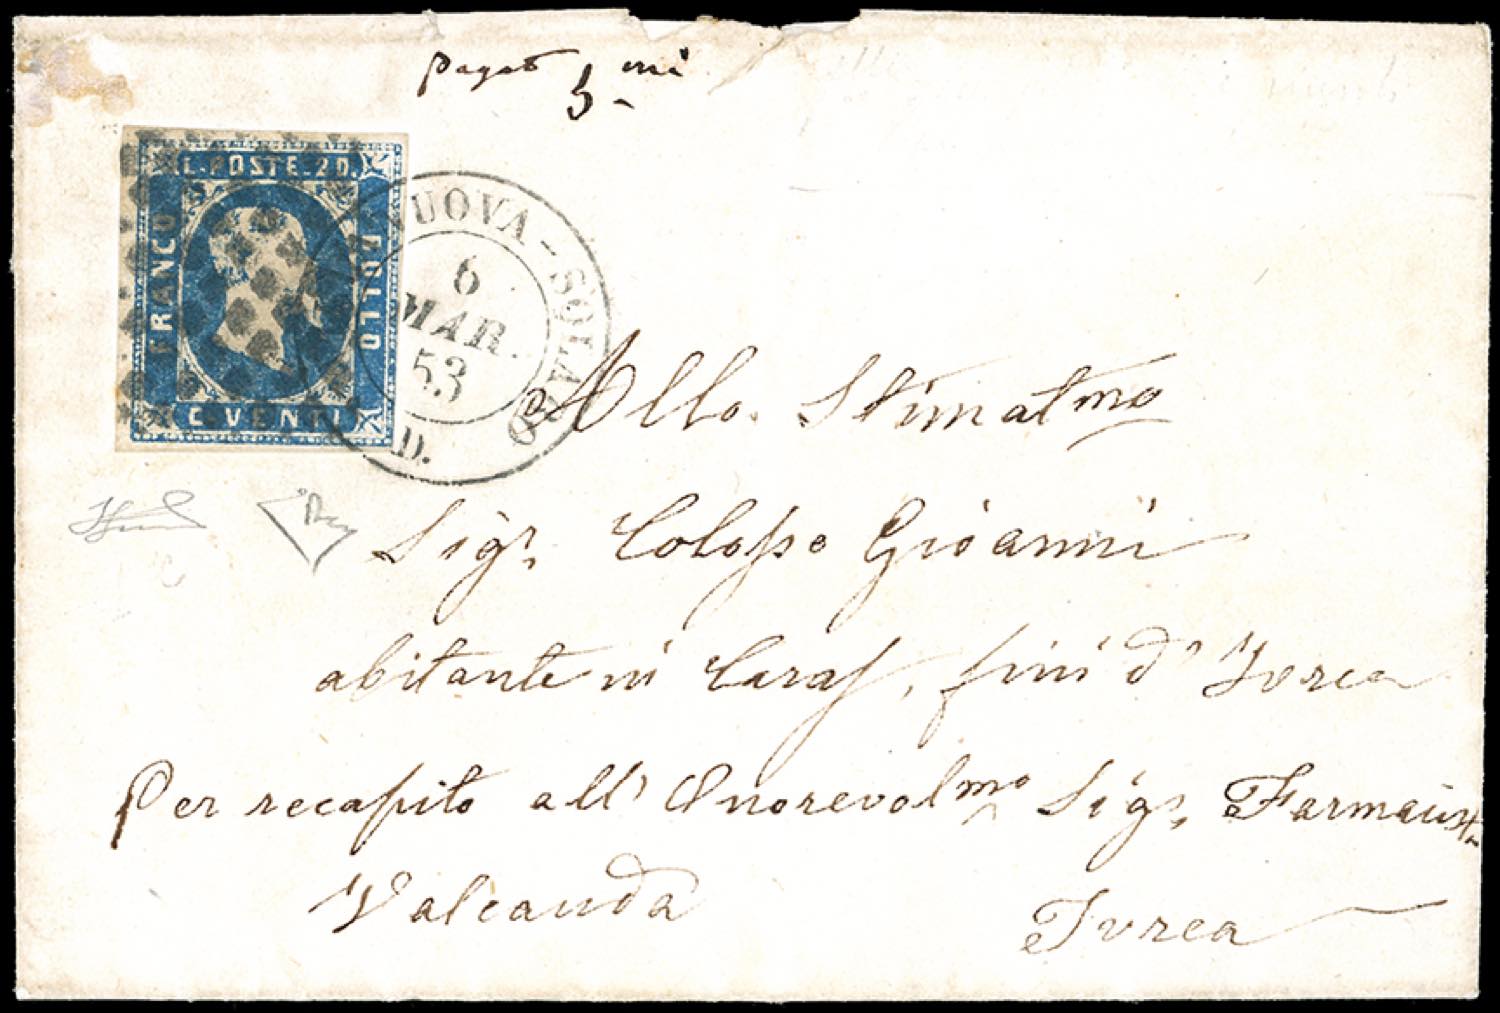 pagato 5 mi
C. POSTE. 20.
FRANCO
BOLLO
C. VENTI
NUOVA - SOLARO
6
MAR.
53
D.
Allo Stimatmo
Sigr. Gioanni
abitante in fini d' Ivrea
Per recapito all' Onorevolmo Sigr. Farmacista
Valcauda
Ivrea